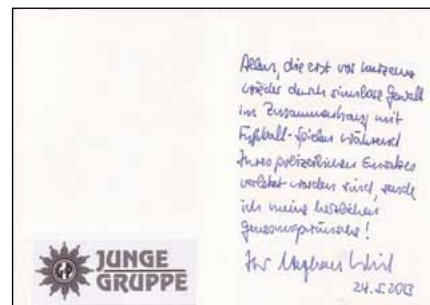 Allen, die erst vor kurzem
wieder durch sinnlose Gewalt
im Zusammenhang mit
Fußball-Spielen während
Ihres polizeilichen Einsatzes
verletzt worden sind, sende
ich meine herzlichen
Genesungswünsche!
Ihr
24.5.2013
GdP JUNGE
GRUPPE